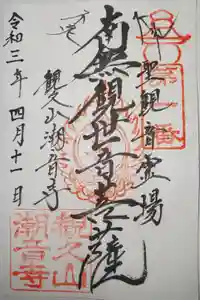 聖観音霊場
南無観世音菩薩
観久山潮音寺
令和三年四月十一日
観久山
潮音寺